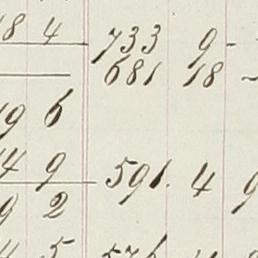 8 4 733 9 -
681 18
19 6
14 9 591. 4 9
9 2
5